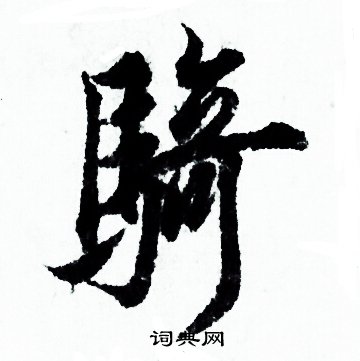 騎
词典网